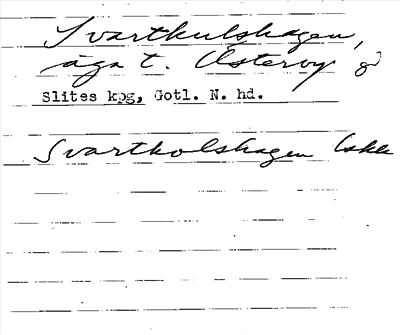 Svartkulshagen,
äga t. Östervy gd
Slites kpg, Gotl. N. hd.
Svartkolshagen Iskk